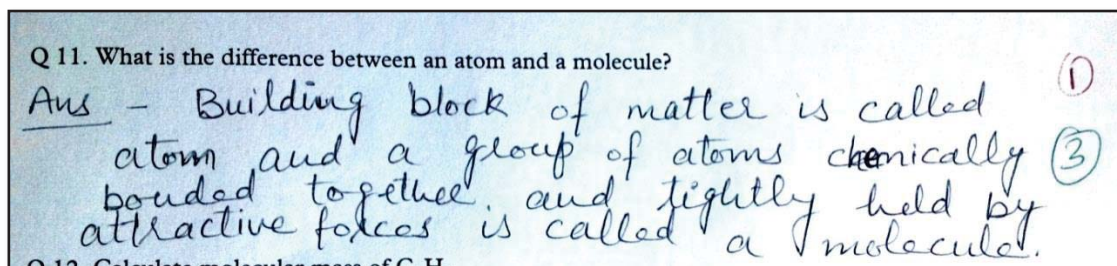 Q 11. What is the difference between an atom and a molecule?
①
Ans - Building block of matter is called
atom and a group of atoms chemically ③
bonded together. and tightly held by
attractive forces is called a molecule.